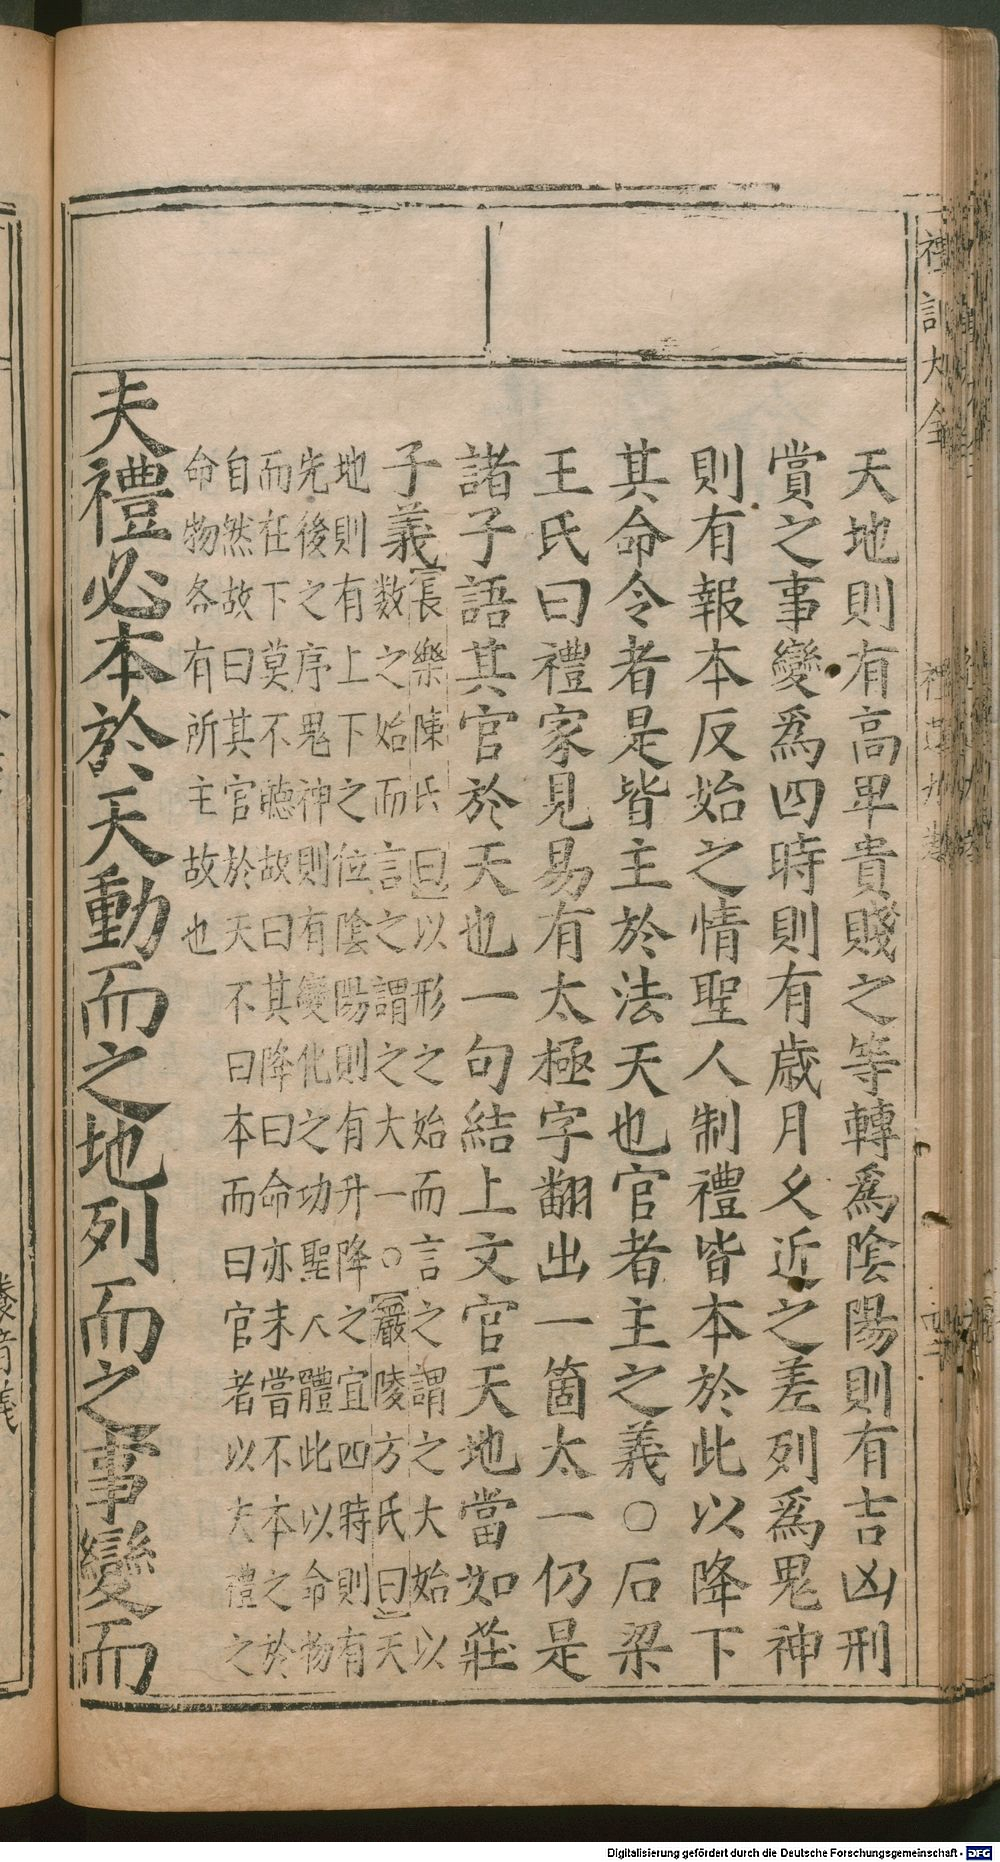 天地則有高卑貴賤之等轉爲陰陽則有吉凶刑
賞之事變爲四時則有歲月久近之差列爲鬼神
則有報本反始之情聖人制禮皆本於此以降下
其命令者是皆主於法天也官者主之義○石梁
王氏曰禮家見易有太極字翻出一箇太一仍是
諸子語其官於天也一句結上文官天地當如莊
子義
長樂陳氏曰以形之始而言之謂之大始以
數之始而言之謂之大一○嚴陵方氏曰天
地則有上下之位陰陽則有升降之宜四時則有
先後之序鬼神則有變化之功聖人體此以命物
而在下莫不聽故曰其降曰命亦未嘗不本之於
自然故曰其官於天不曰本而曰官者以夫禮之
命物各有所主故也
夫禮必本於天動而之地列而之事變而
Digitalisierung gefördert durch die Deutsche Forschungsgemeinschaft - DFG